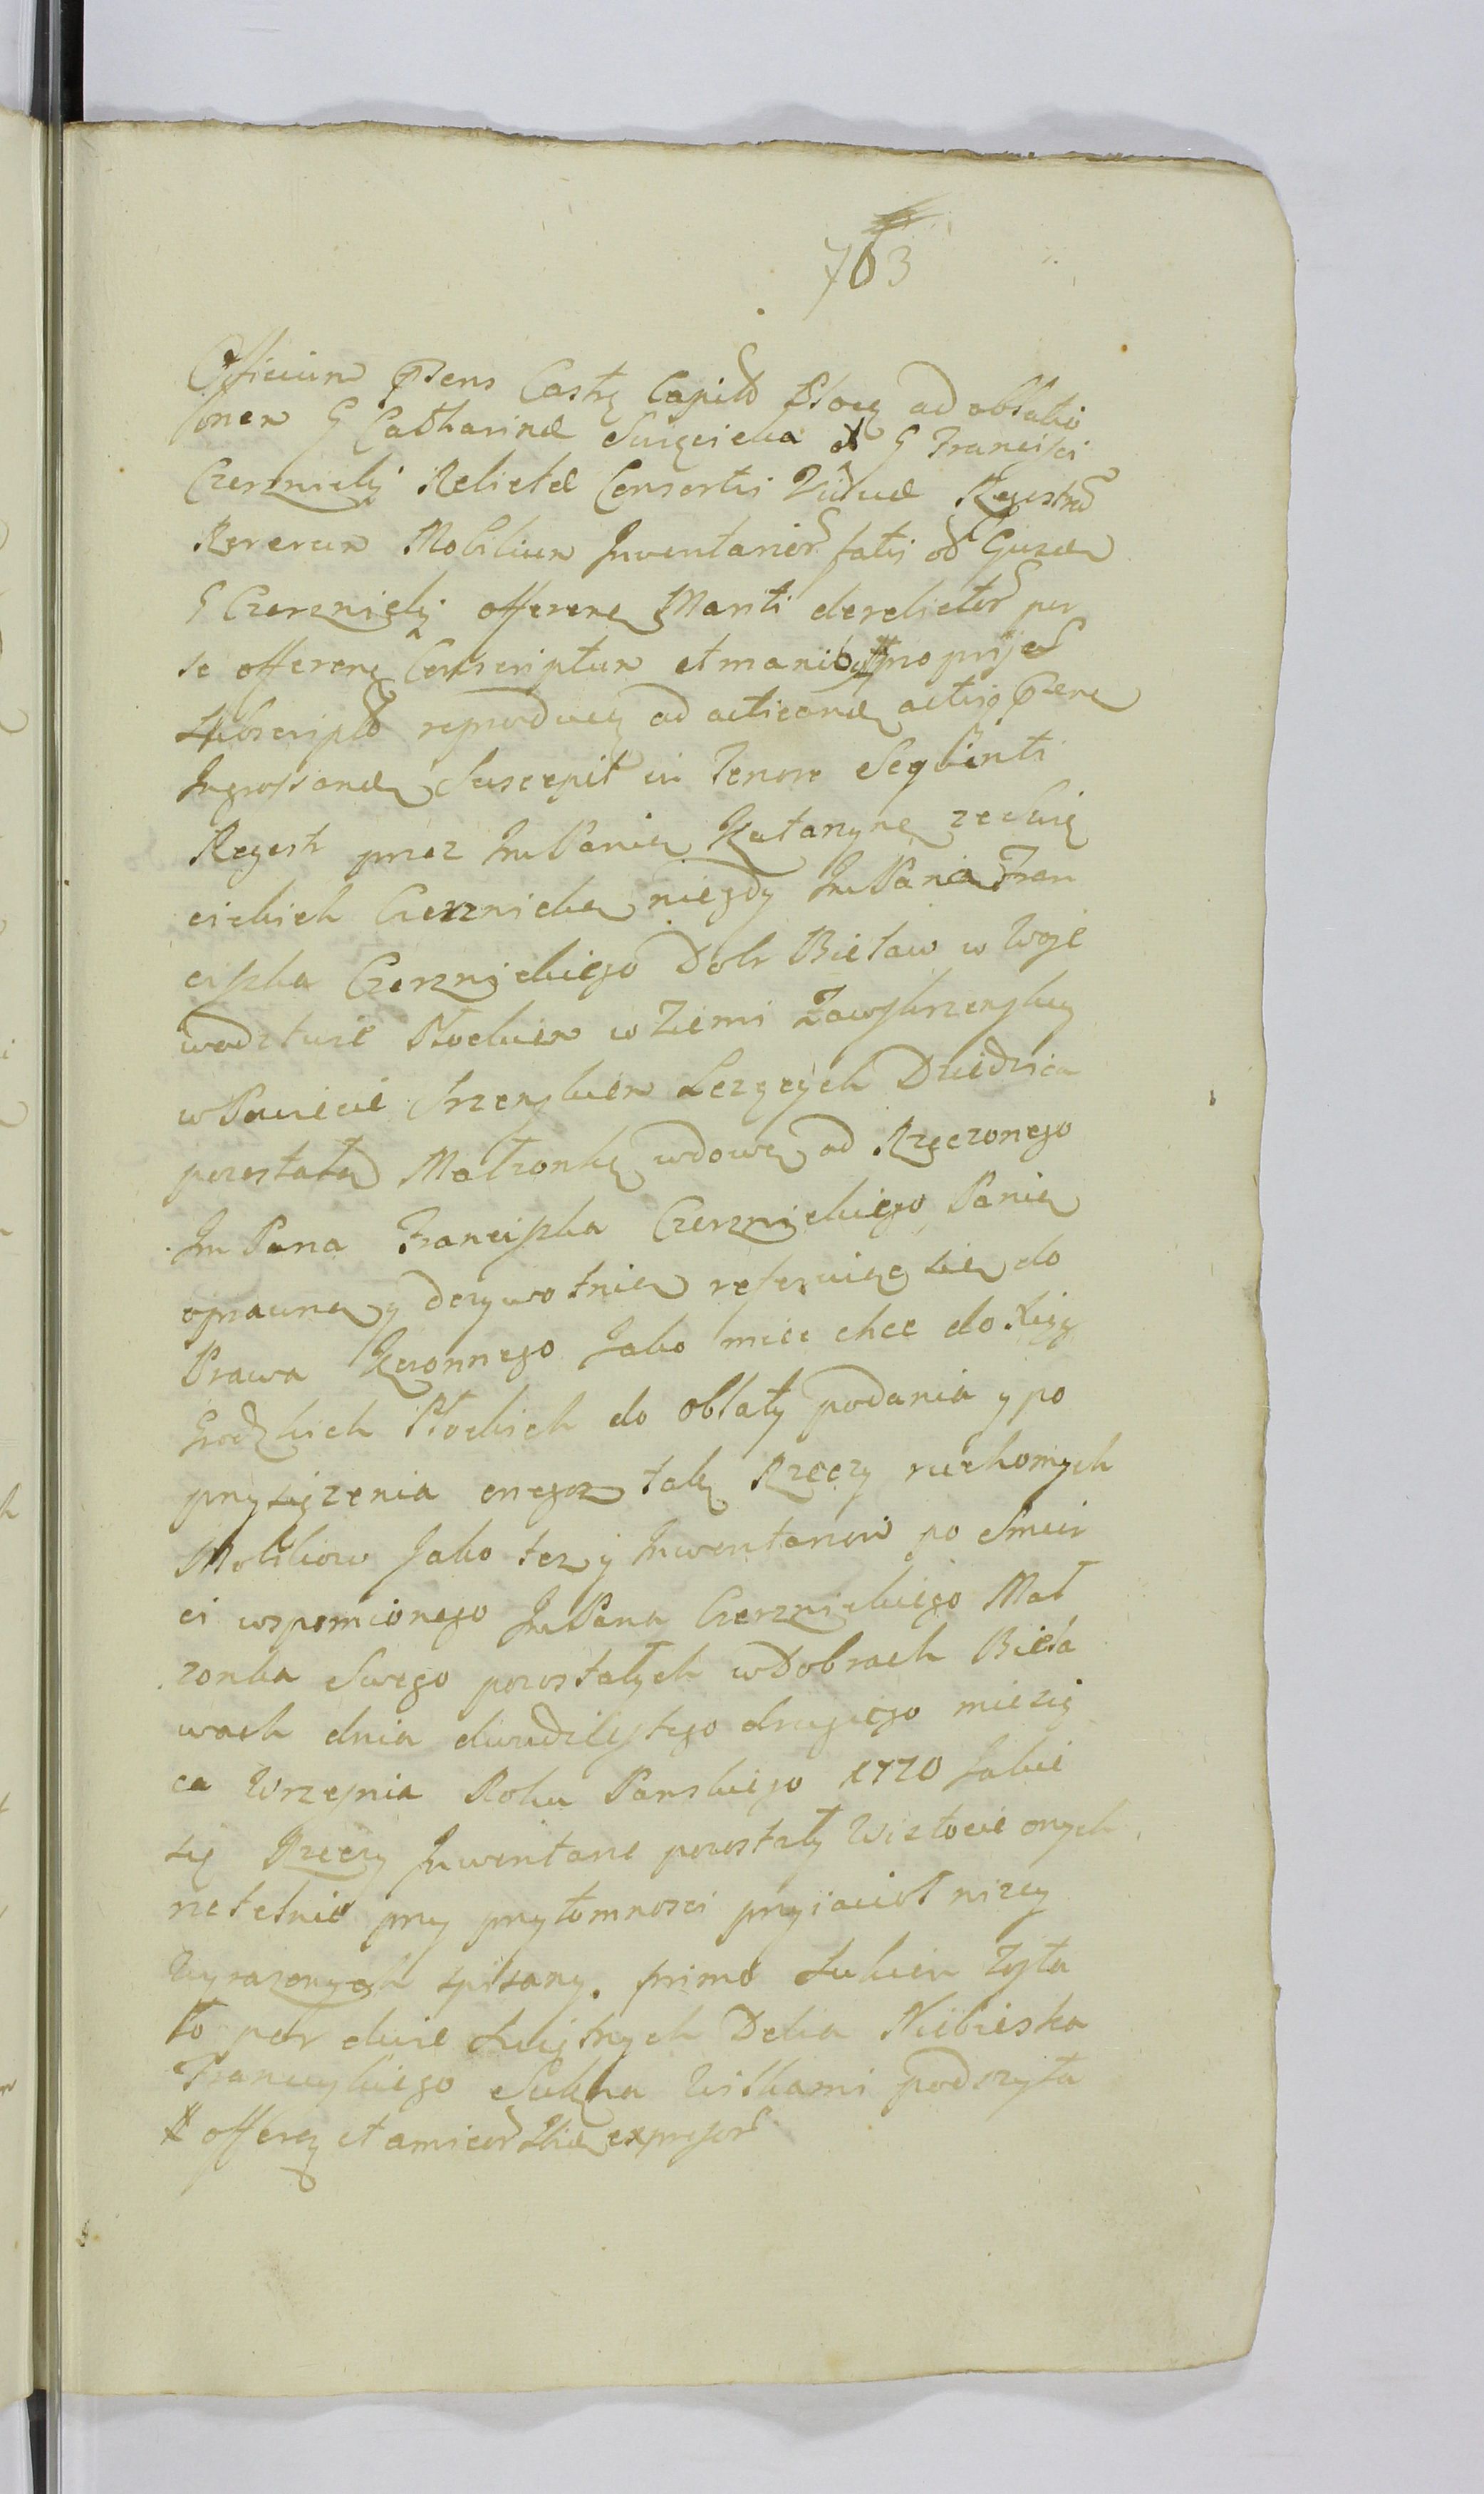 703
Officium Pntns Castr Capitł Płocę ad oblatio
onem G Catharinæ Swięcicka et G Francisci
Czerznicki Relictæ Consortis Viduæ Regestrũ
Rererum Mobilium Inventarior fati od Gnrem
G Czerznicki offerenę Mariti derelictor per
se offerenę Conscriptum et manibq # proprijs
Subscriptũ reproducę ad acticand actisq Pnene
Ingrossand Suscepit in Tenore Seqventi
Regestr przez ImPanią Katarzynę ze Swię
cickich Czerznicką niegdy ImPana Fran
ciszka Czerznickiego Dobr Bieław w Woje
wodztwie Płockim w Ziemi Zawskrzenskiy
w Powiecie Srzenskim Lezęcych Dziedzica
pozostałą Małzonkę wdowę od Rzeczonego
Im Pana Franciszka Czerznickiego Panią
oprawną y dozywotnią referuięc się do
Prawa Koronnego Jako miec chce do Xięg
Grodzkich Płockich do oblaty podania y po
przysięzenia onegoz tak Rzeczy ruchomych
Mobiliow Jako tez y Inwentarzow po Smier
ci wspomionego ImPana Czerznickiego Mał
zonka Swego pozostałych w Dobrach Bieła
wach dnia dwudziestego drugiego miesię
ca Wrzesnia Roku Panskiego 1720 Jakie
się Rzeczy Inwentarze pozostały Wistocie onych
rzetelnie przy przytomnosci przyiacioł nizey
Wyrazonych spisany. primo Sukien Zosta
ło par dwie Swiętnych Delia Niebieska
Francuskiego Sukna Wilkami podszyta
# offerę et amicor Ibid expressor